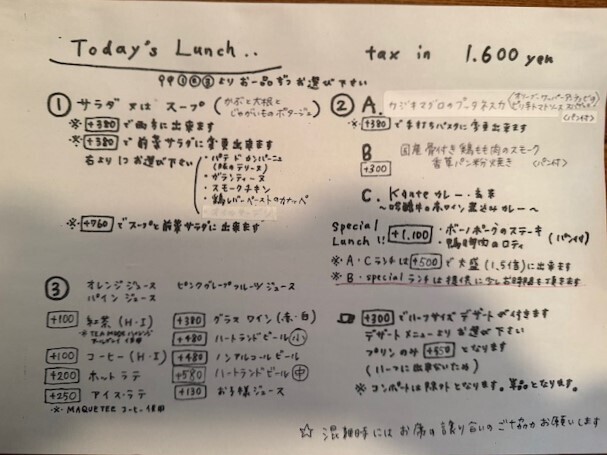 Today's Lunch..
tax in 1.600 yen
①②③よりお一品ずつお選び下さい
① サラダ 又は スープ (かぶと大根と
じゃがいものポタージュ)
※ +380 で両方に出来ます
※ +380 で前菜サラダに変更出来ます
右より1つお選び下さい
・パテ ド カンパーニュ
(豚のテリーヌ)
・ガランティーヌ
・スモークチキン
・鶏レバーペーストのカナッペ
※ +760 でスープと前菜サラダに出来ます
② A. カジキマグロのプッタネスカ (オリーブ・ケッパー・アンチョビの
ピリ辛トマトソース スパゲティ)
(パン付)
※ +380 で手打ちパスタに変更出来ます
B 国産骨付き鶏もも肉のスモーク
+300 香草パン粉焼き (パン付)
C. Kgate カレー・玄米
〜牛の赤ワイン煮込みカレー〜
Special
Lunch!! +1,100 ・ボーノポークのステーキ
・鴨胸肉のロティ (パン付)
※ A・Cランチは +500 で大盛(1.5倍)に出来ます
※ B・specialランチは提供に少しお時間を頂きます
③ オレンジジュース ピンクグレープフルーツジュース
パインジュース
+100 紅茶 (H・I)
※ TEA MADE
+100 コーヒー (H・I)
+200 ホットラテ
+250 アイス・ラテ
※ MAQUETEE コーヒー使用
+380 グラスワイン (赤・白)
+480 ハートランドビール 小
+480 ノンアルコールビール
+580 ハートランドビール 中
+130 お子様ジュース
+300 でハーフサイズデザートが付きます
デザートメニューよりお選び下さい
プリンのみ +450 となります
(ハーフに出来ないため)
※ コンポートは除外となります。単品となります。
☆ 混雑時にはお席の譲り合いのご協力お願いします